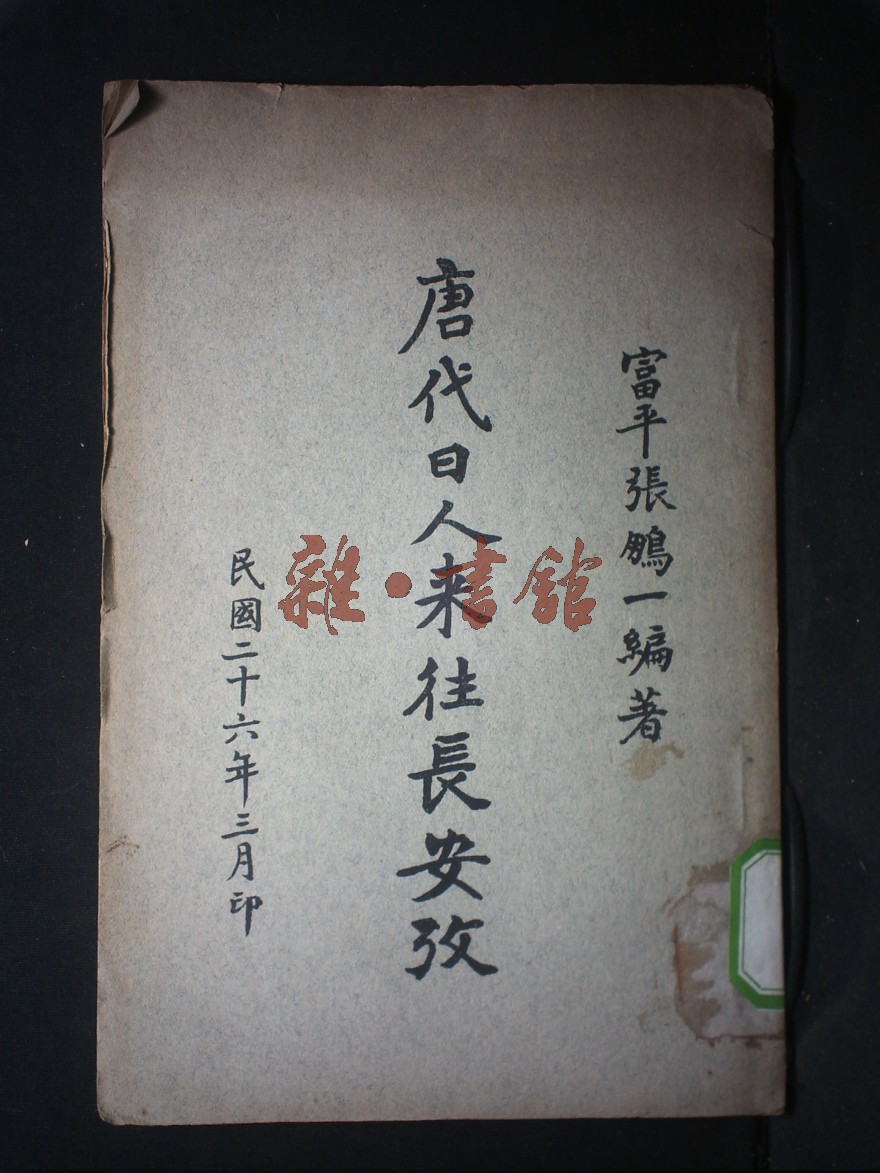 富平張鵬一編著
唐代日人来往長安攷
民國二十六年三月印
雜·書館